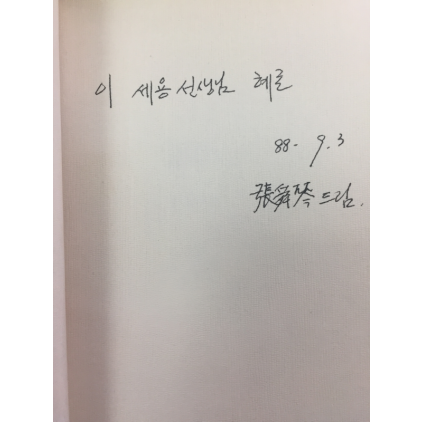 이 세용 선생님 혜존
88- 9.3
張舜琴 드림.